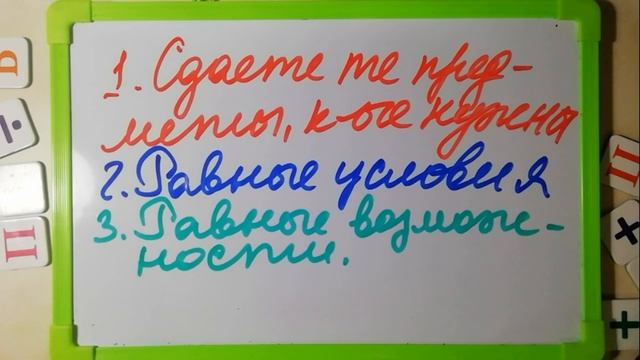 1. Сдаете те пред-
меты, к-ые нужны
2. Равные условия
3. Равные возмож-
ности.
Ь
÷
П
П
×
+